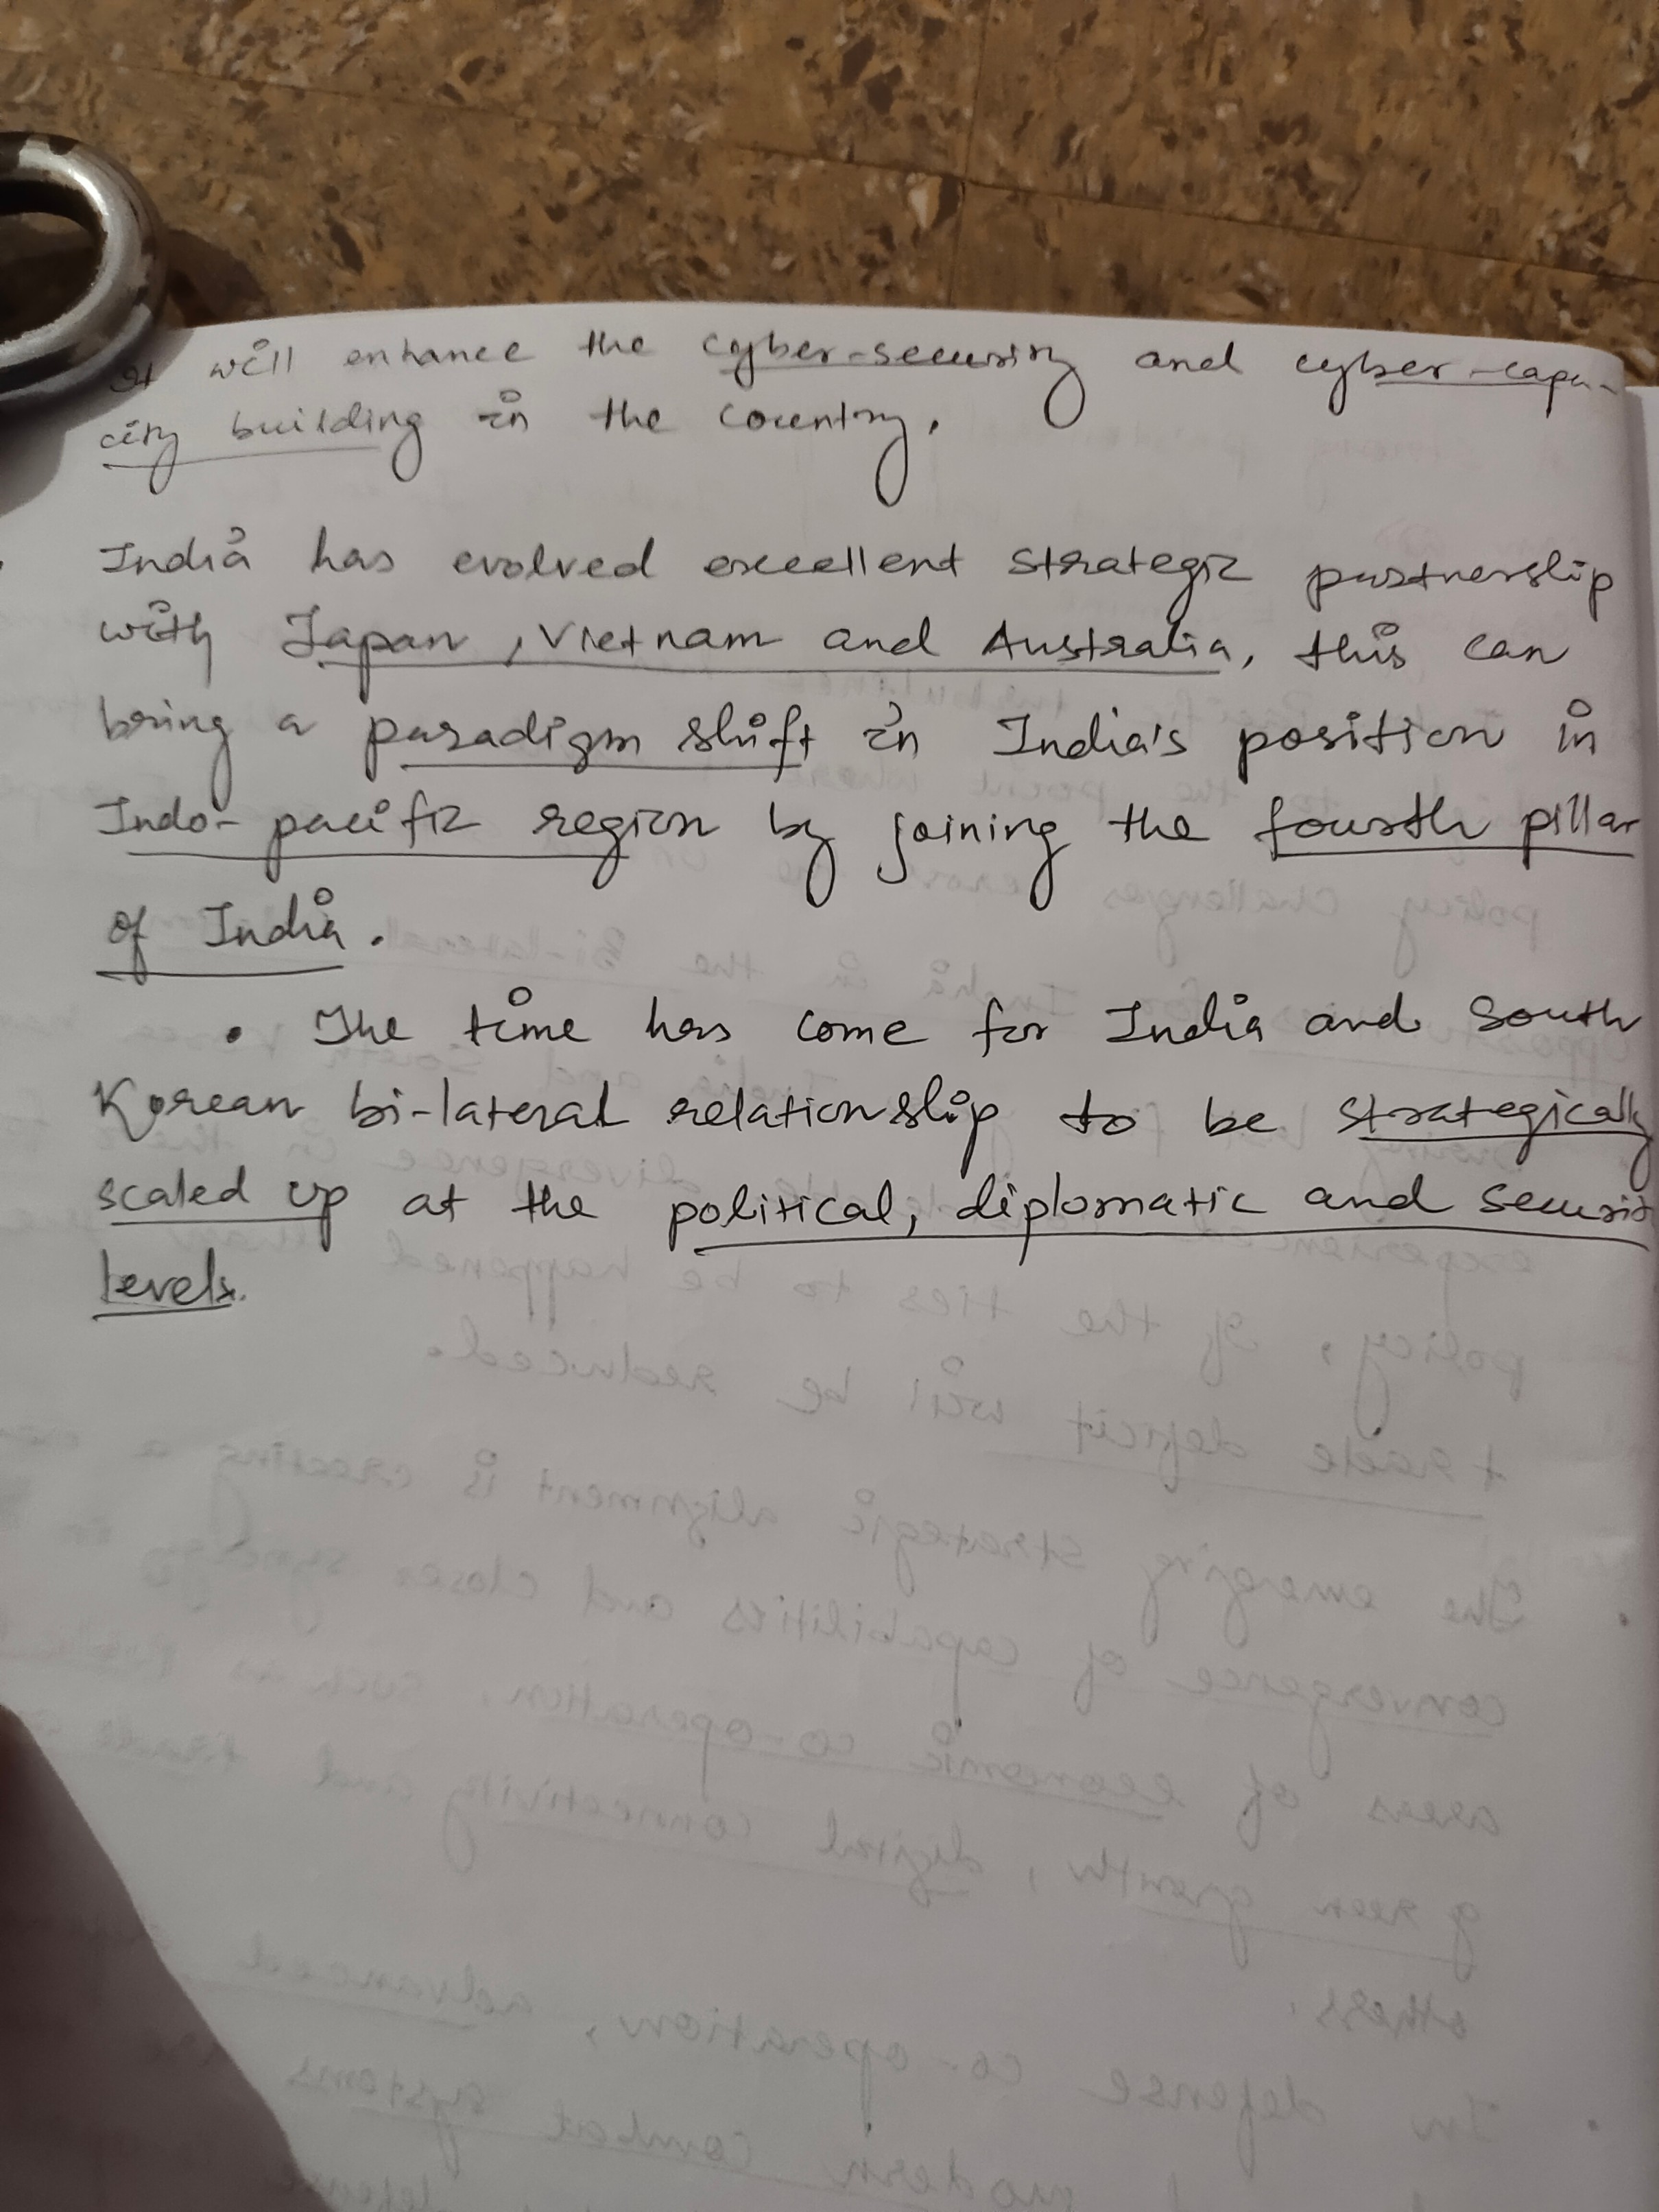 It will enhance the cyber-security and cyber-capa-
city building in the country.
India has evolved excellent strategic partnership
with Japan, Vietnam and Australia, this can
bring a paradigm shift in India's position in
Indo-pacific region by joining the fourth pillar
of India.
• The time has come for India and South
Korean bi-lateral relationship to be strategically
scaled up at the political, diplomatic and security
levels.